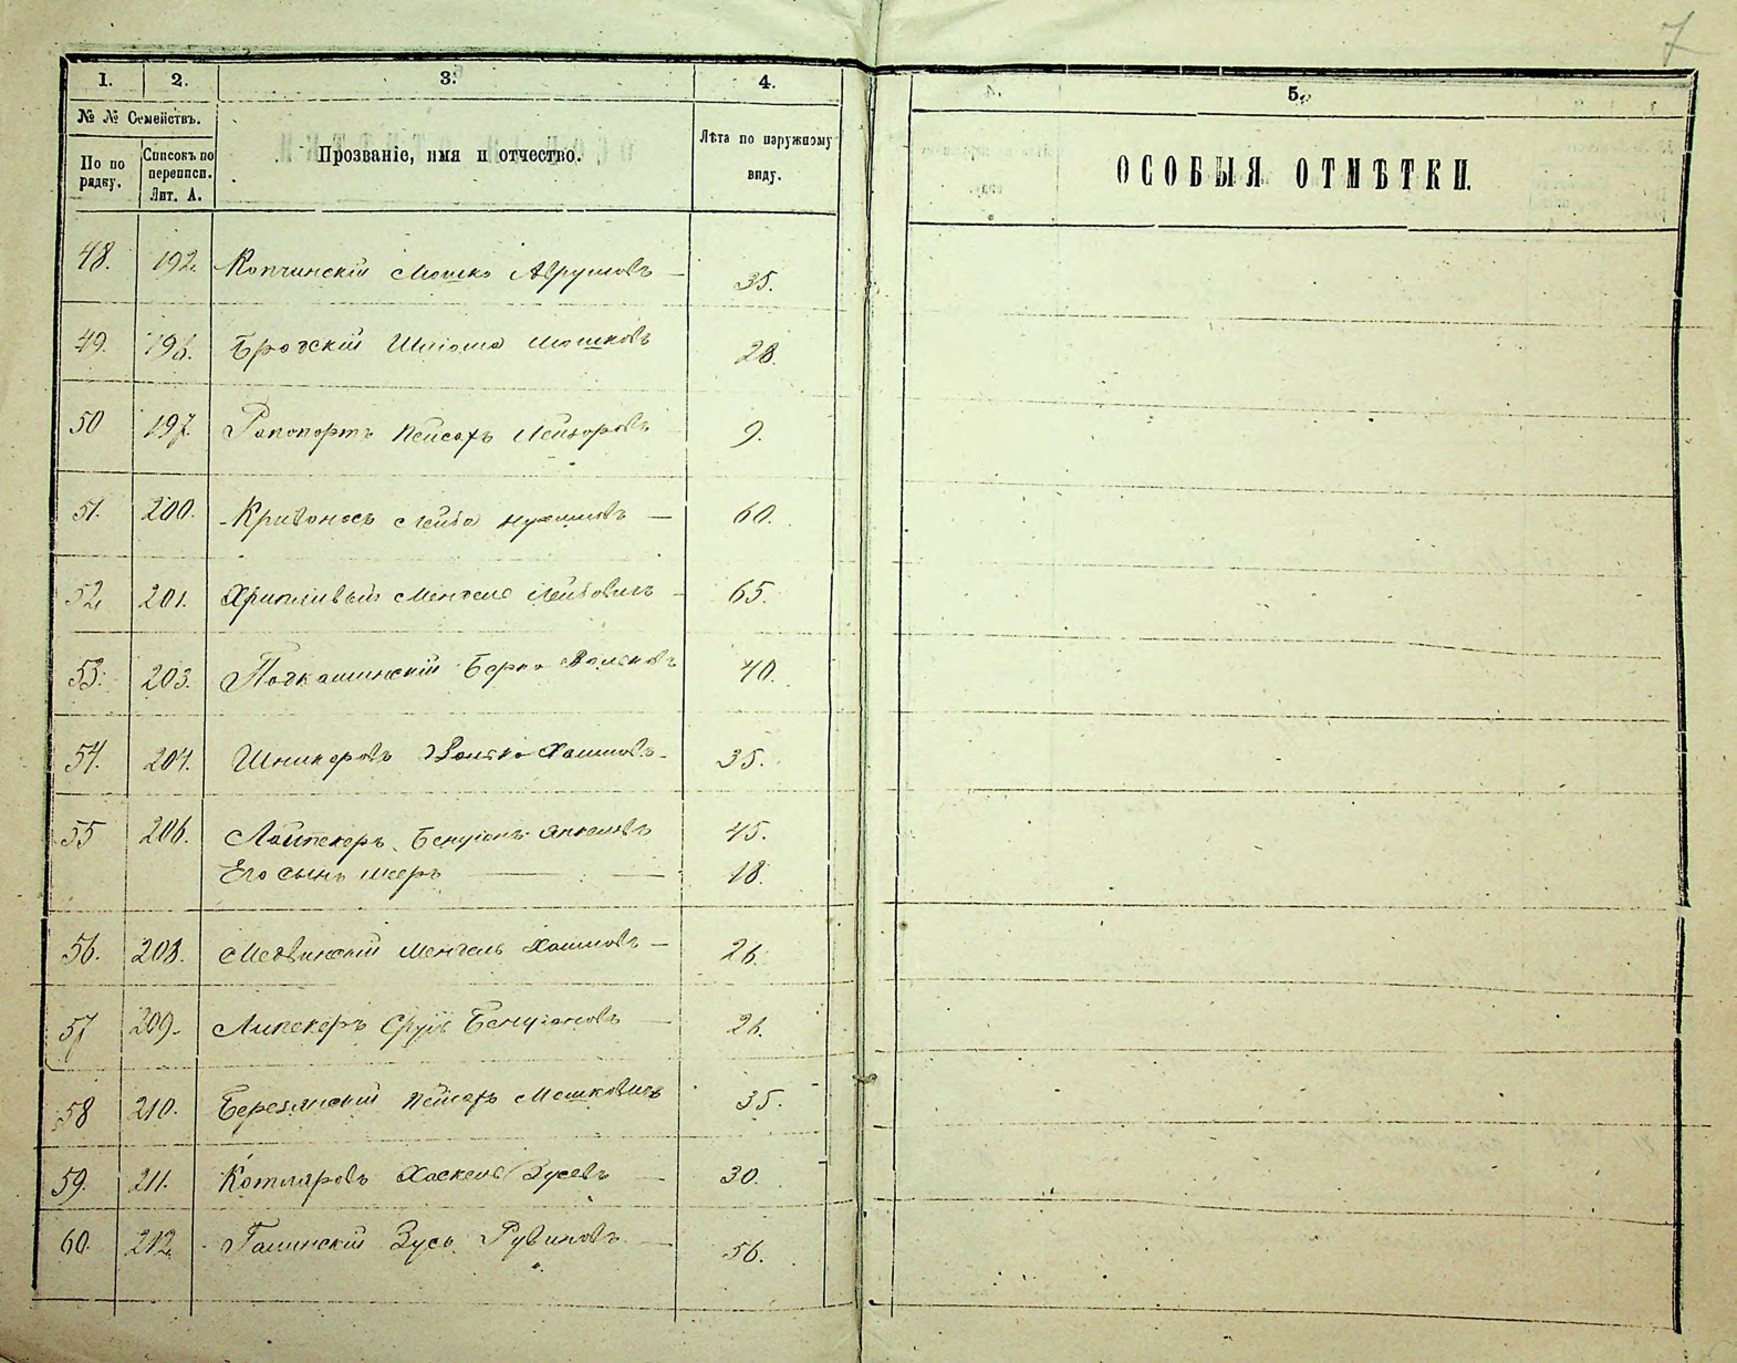 7
1. 2. 3. 4. 5.
№ № Семействъ.
По по рядку.
Списокъ по переписи. Лит. А.
Прозваніе, имя и отчество.
Лѣта по наружному виду.
ОСОБЫЯ ОТМѢТКИ.
48. 192. Копчинскій Мошко Аврумовъ — 35.
49. 195. Бродскій Шліома Мошковъ 28.
50 197. Рапопортъ Пейсахъ Лейзоровъ 9.
51. 200. Кривоносъ Лейба Нухимовъ — 60.
52. 201. Хрипливый Мендель Лейбовичъ 65.
53. 203. Подкаминскій Берко Вольковъ 40.
54. 204. Шникеровъ Волько Хаимовъ 35.
55 206. Бенціонъ Янкелевъ 45.
Его сынъ Мееръ — — 18.
56. 208. Медвинскій Мендель Хаимовъ — 26.
57 209. Липекеръ Сруль Бенціоновъ — 26.
58 210. Березянскій Пейсахъ Мошковичъ 35.
59. 211. Котляровъ Хаскель Зусевъ — 30.
60. 212. Галинскій Зусь Рувиновъ — 56.